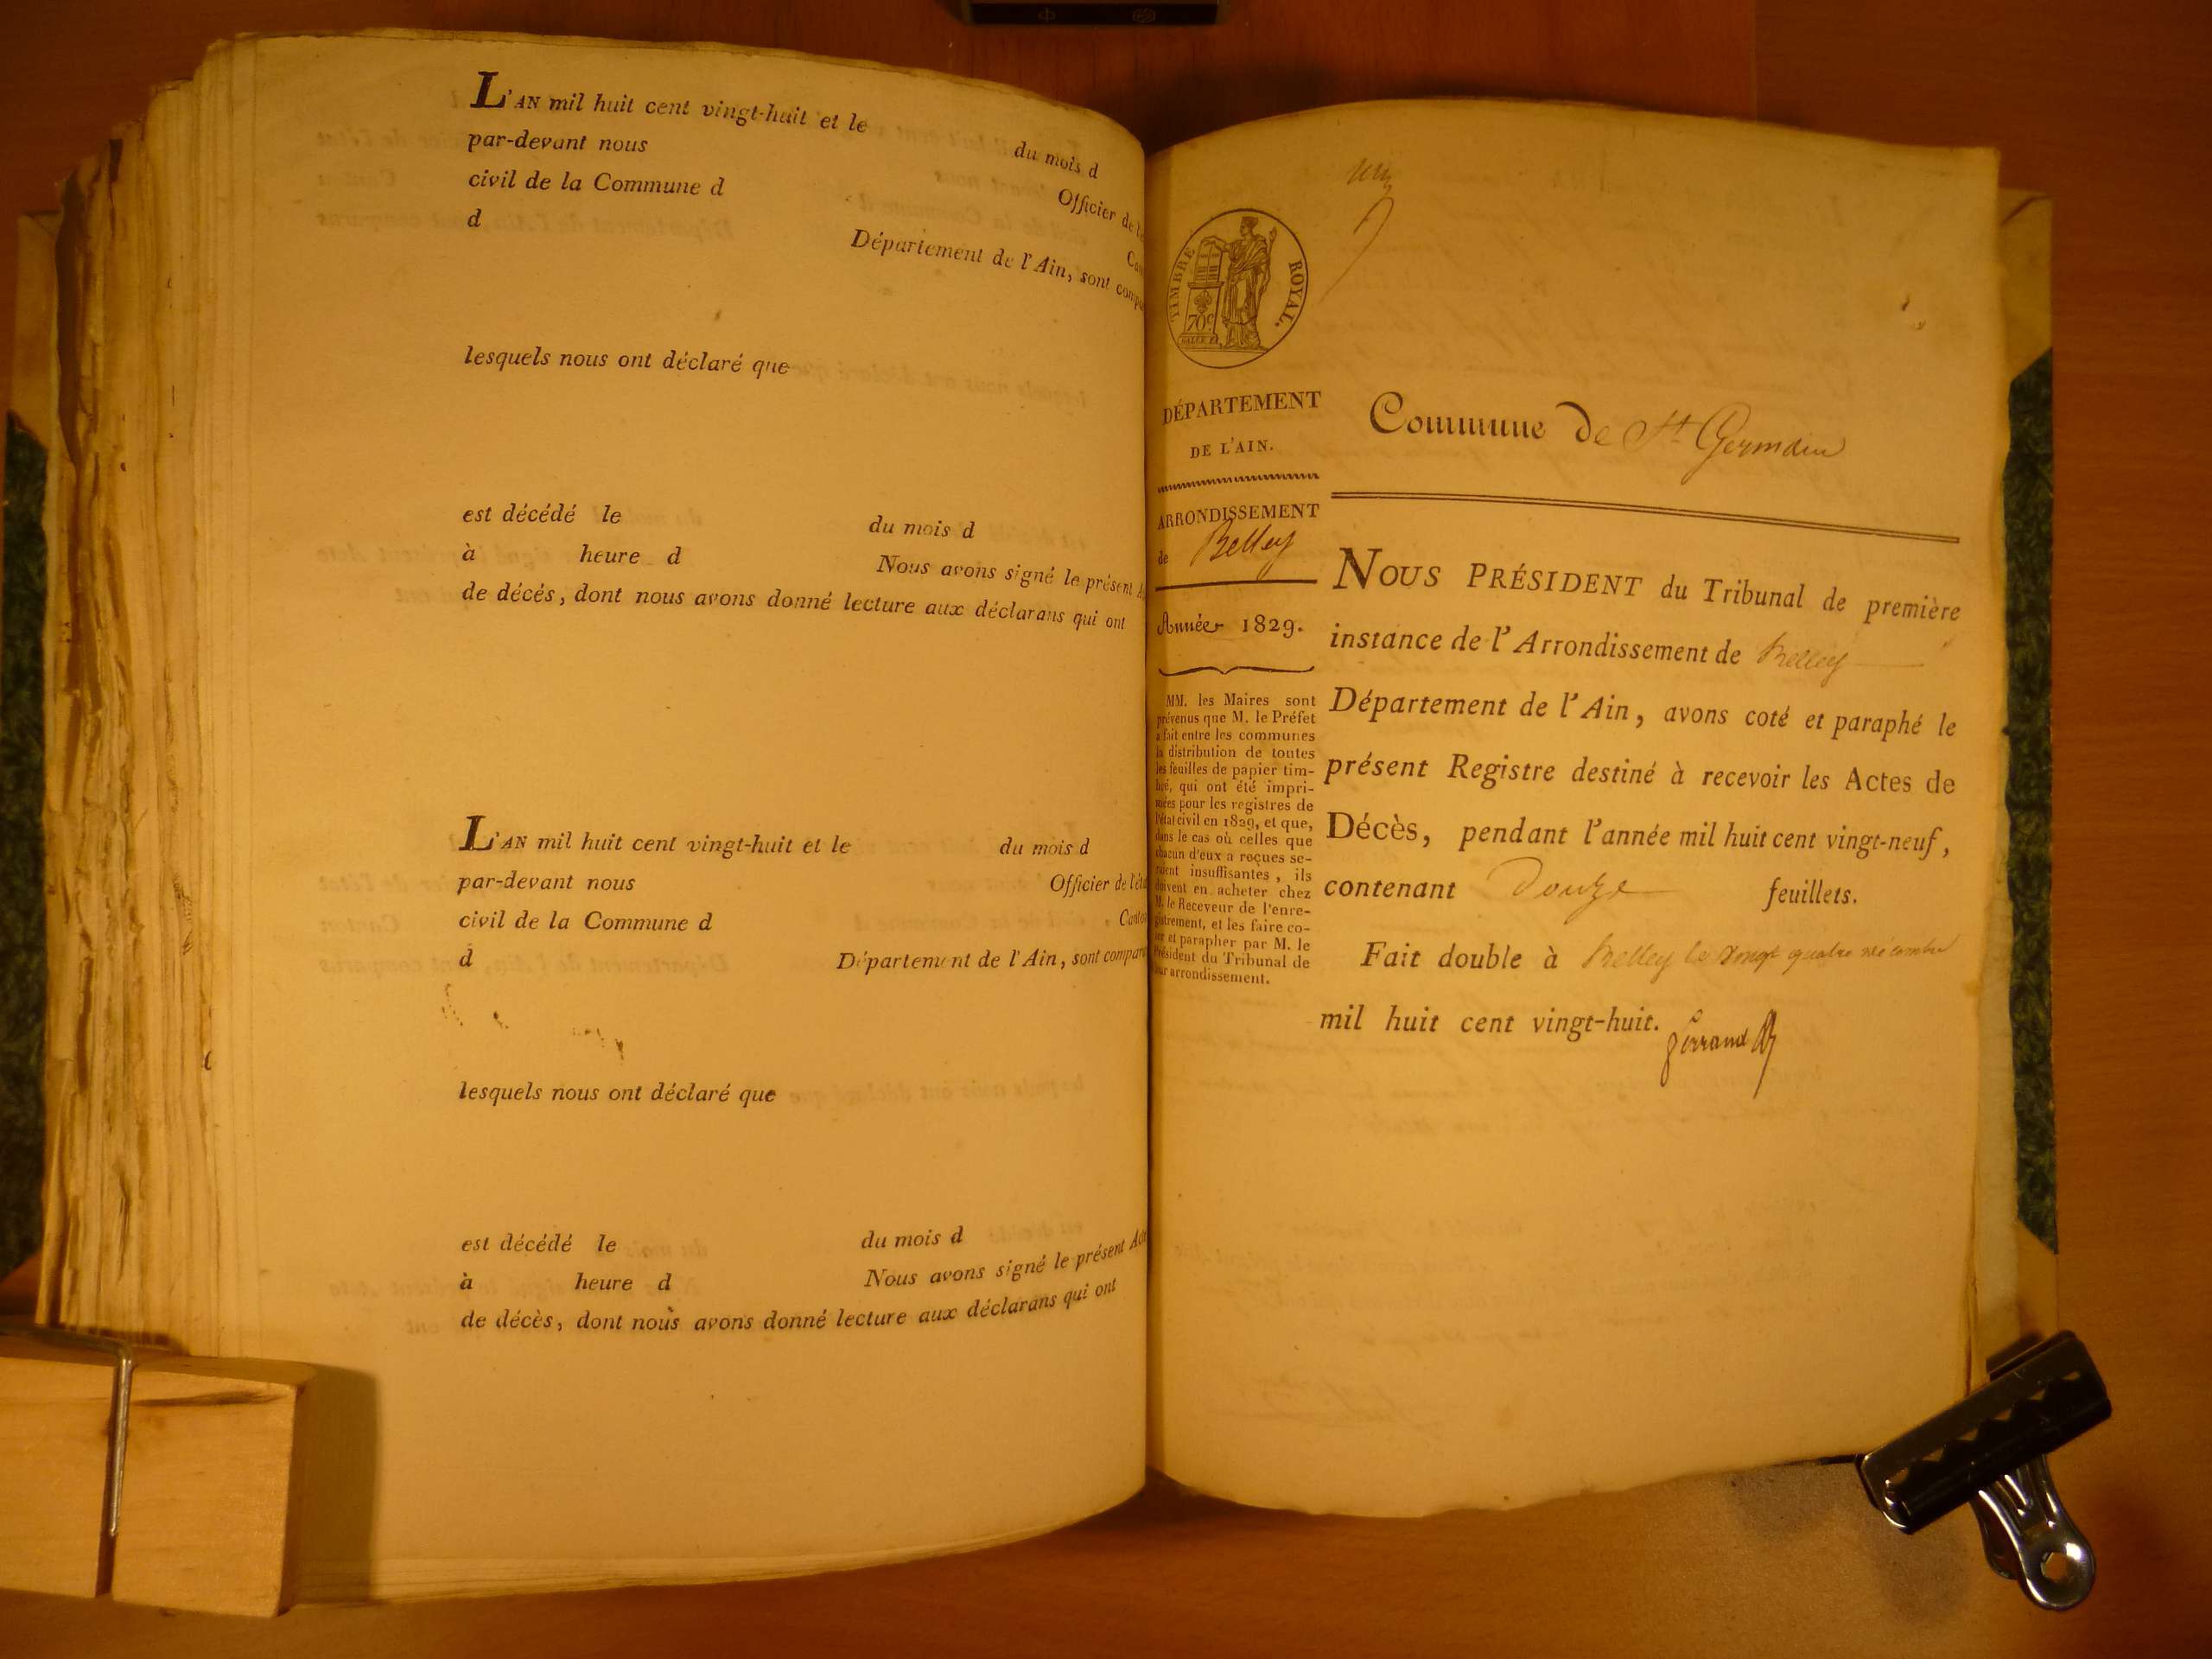 L'AN mil huit cent vingt-huit et le du mois d
par-devant nous Officier de l'
civil de la Commune d
d Département de l'Ain, sont comp
lesquels nous ont déclaré que
est décédé le du mois d
à heure d Nous avons signé le présent
de décés, dont nous avons donné lecture aux déclarans qui ont
L'AN mil huit cent vingt-huit et le du mois d
par-devant nous Officier de l'éta
civil de la Commune d Canton
d Département de l'Ain, sont compara
lesquels nous ont déclaré que
est décédé le du mois d
à heure d Nous avons signé le présent Acte
de décès, dont nous avons donné lecture aux déclarans qui ont
TIMBRE ROYAL.
70c
DÉPARTEMENT
DE L'AIN.
ARRONDISSEMENT
de Belley
Année 1829.
MM. les Maires sont
prévenus que M. le Préfet
a fait entre les communes
la distribution de toutes
les feuilles de papier tim-
bré, qui ont été impri-
mées pour les registres de
l'état civil en 1829, et que,
dans le cas où celles que
chacun d'eux a reçues se-
raient insuffisantes, ils
doivent en acheter chez
M. le Receveur de l'enre-
gistrement, et les faire co-
ter et parapher par M. le
Président du Tribunal de
leur arrondissement.
Commune de St Germain
NOUS PRÉSIDENT du Tribunal de première
instance de l'Arrondissement de Belley
Département de l'Ain, avons coté et paraphé le
présent Registre destiné à recevoir les Actes de
Décès, pendant l'année mil huit cent vingt-neuf,
contenant Douze feuillets.
Fait double à Belley le vingt quatre décembre
mil huit cent vingt-huit.